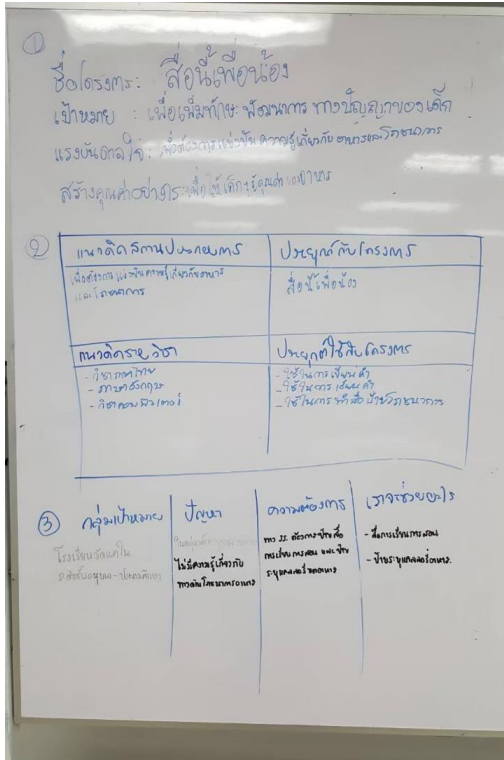 ①
ชื่อโครงการ: สื่อนี้เพื่อน้อง
เป้าหมาย : เพื่อเพิ่มทักษะพัฒนาการทางปัญญาของเด็ก
แรงบันดาลใจ: เพื่อต้องการแบ่งปันความรู้เกี่ยวกับอาหารและโภชนาการ
สร้างคุณค่าอย่างไร: เพื่อให้เด็กรู้คุณค่าของอาหาร
②
แนวคิดสถานประกอบการ
ประยุกต์กับโครงการ
เพื่อต้องการแบ่งปันความรู้เกี่ยวกับอาหาร
และโภชนาการ
สื่อนี้เพื่อน้อง
แนวคิดรายวิชา
ประยุกต์ใช้กับโครงการ
- วิชาภาษาไทย
- ภาษาอังกฤษ
- วิชาคอมพิวเตอร์
- ใช้ในการเขียนคำ
- ใช้ในการเขียนคำ
- ใช้ในการทำสื่อป้ายโภชนาการ
③
กลุ่มเป้าหมาย
ปัญหา
ความต้องการ
เราจะช่วยอะไร
โรงเรียนวัดแค่ใน
ไม่มีความรู้เกี่ยวกับ
ทางด้านโภชนาการอาหาร
ทาง รร. ต้องการป้ายสื่อ
การเรียนการสอน และป้าย
ระบุแคลอรี่อาหาร
- สื่อการเรียนการสอน
- ป้ายระบุแคลอรี่อาหาร.